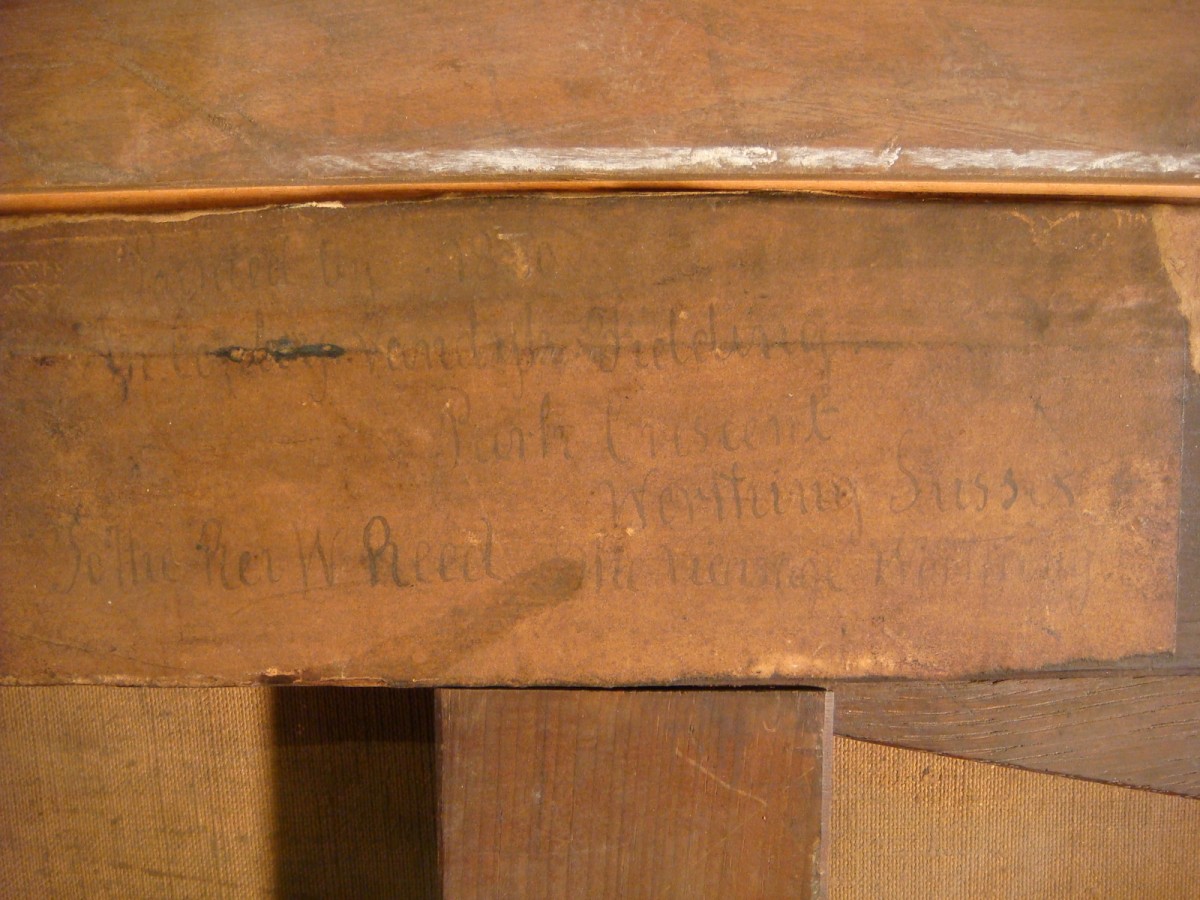 Painted by 18
Copley Vandyke Fielding
Park Crescent
Worthing Sussex
To The Rev W Reed The vicarage Worthing